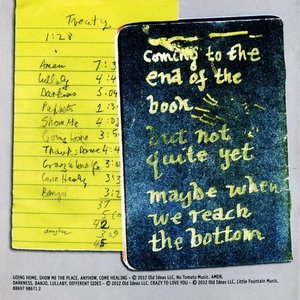 Twenty
1:28
Amen 7:3
Lullaby 4:
Darkness 5:04
Puppets 1:
Show Me 4:03
Going Home 3:5
Thanks Dance 4:4
Come Healing
Banjo 3:2
42
anyhow 3
45
coming to the
end of the
book
but not
quite yet
maybe when
we reach
the bottom
GOING HOME, SHOW ME THE PLACE, ANYHOW, COME HEALING - © 2012 Old Ideas LLC, No Tomato Music. AMEN,
DARKNESS, BANJO, LULLABY, DIFFERENT SIDES - © 2012 Old Ideas LLC. CRAZY TO LOVE YOU - © 2012 Old Ideas LLC, Little Fountain Music.
88697 98671 2